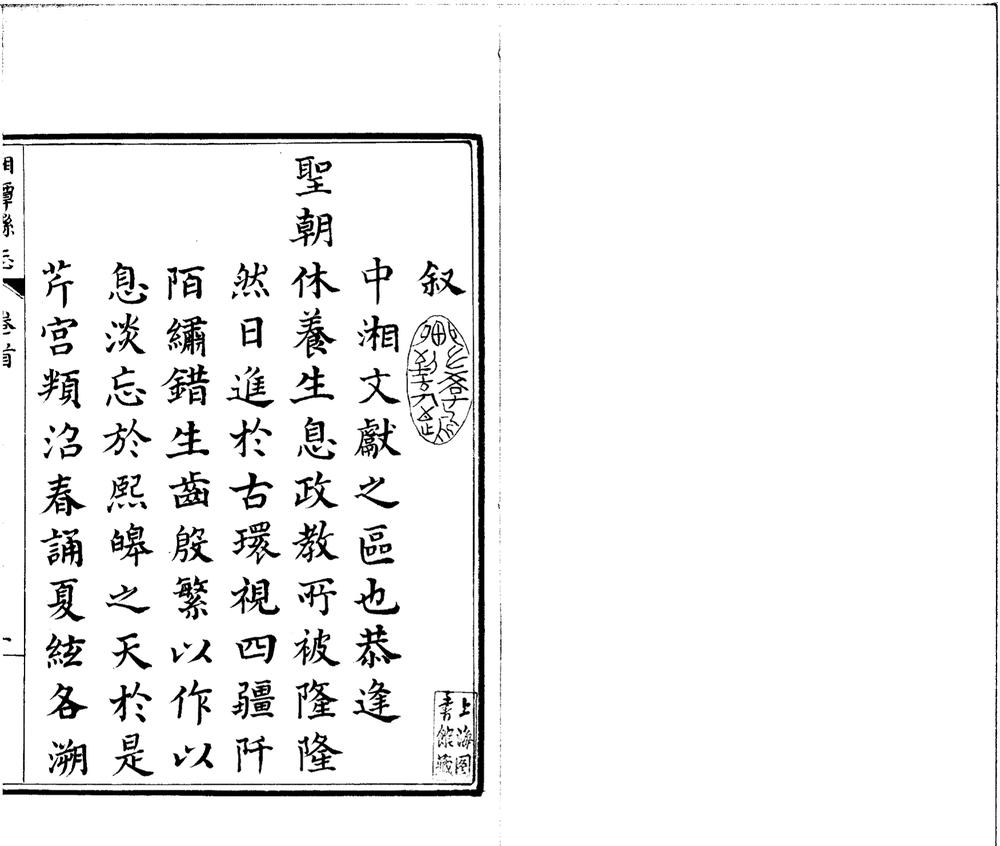 叙
中湘文獻之區也恭逢
聖朝休養生息政教所被隆隆
然日進於古環視四疆阡
陌繡錯生齒殷繁以作以
息淡忘於熙皞之天於是
芹宮頖沼春誦夏絃各溯
湘潭縣志 卷首 一
上海图
書館藏